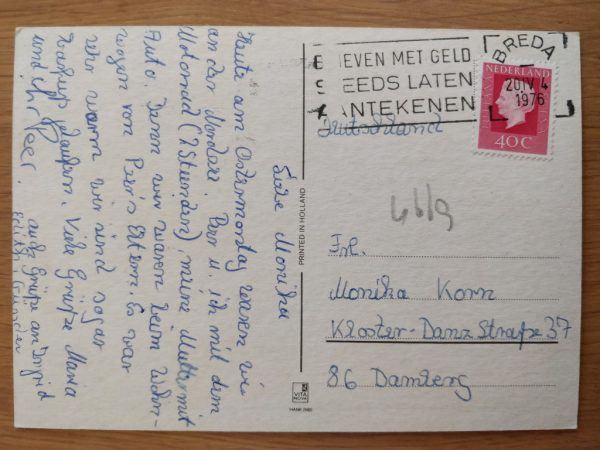 Liebe Monika
Heute am Ostermontag waren wir
an der Nordsee. Peer u. ich mit dem
Motorrad (2 Stunden), meine Mutter mit
Auto. Dann wir waren beim Wohn-
wagen von Peer's Eltern. Es war
sehr warm wir sind sogar
Barfuß gelaufen. Viele Grüße Maria
und Ihr Peer.
auch Grüße an Ingrid
Edith Günter
PRINTED IN HOLLAND
VITA
NOVA
HANK
EVEN MET GELD
EEDS LATEN
ANTEKENEN
BREDA
20 IV 4
1976
NEDERLAND
40C
Deutschland
Frl.
Monika Korn
Kloster-Danz Straße 37
86 Bamberg